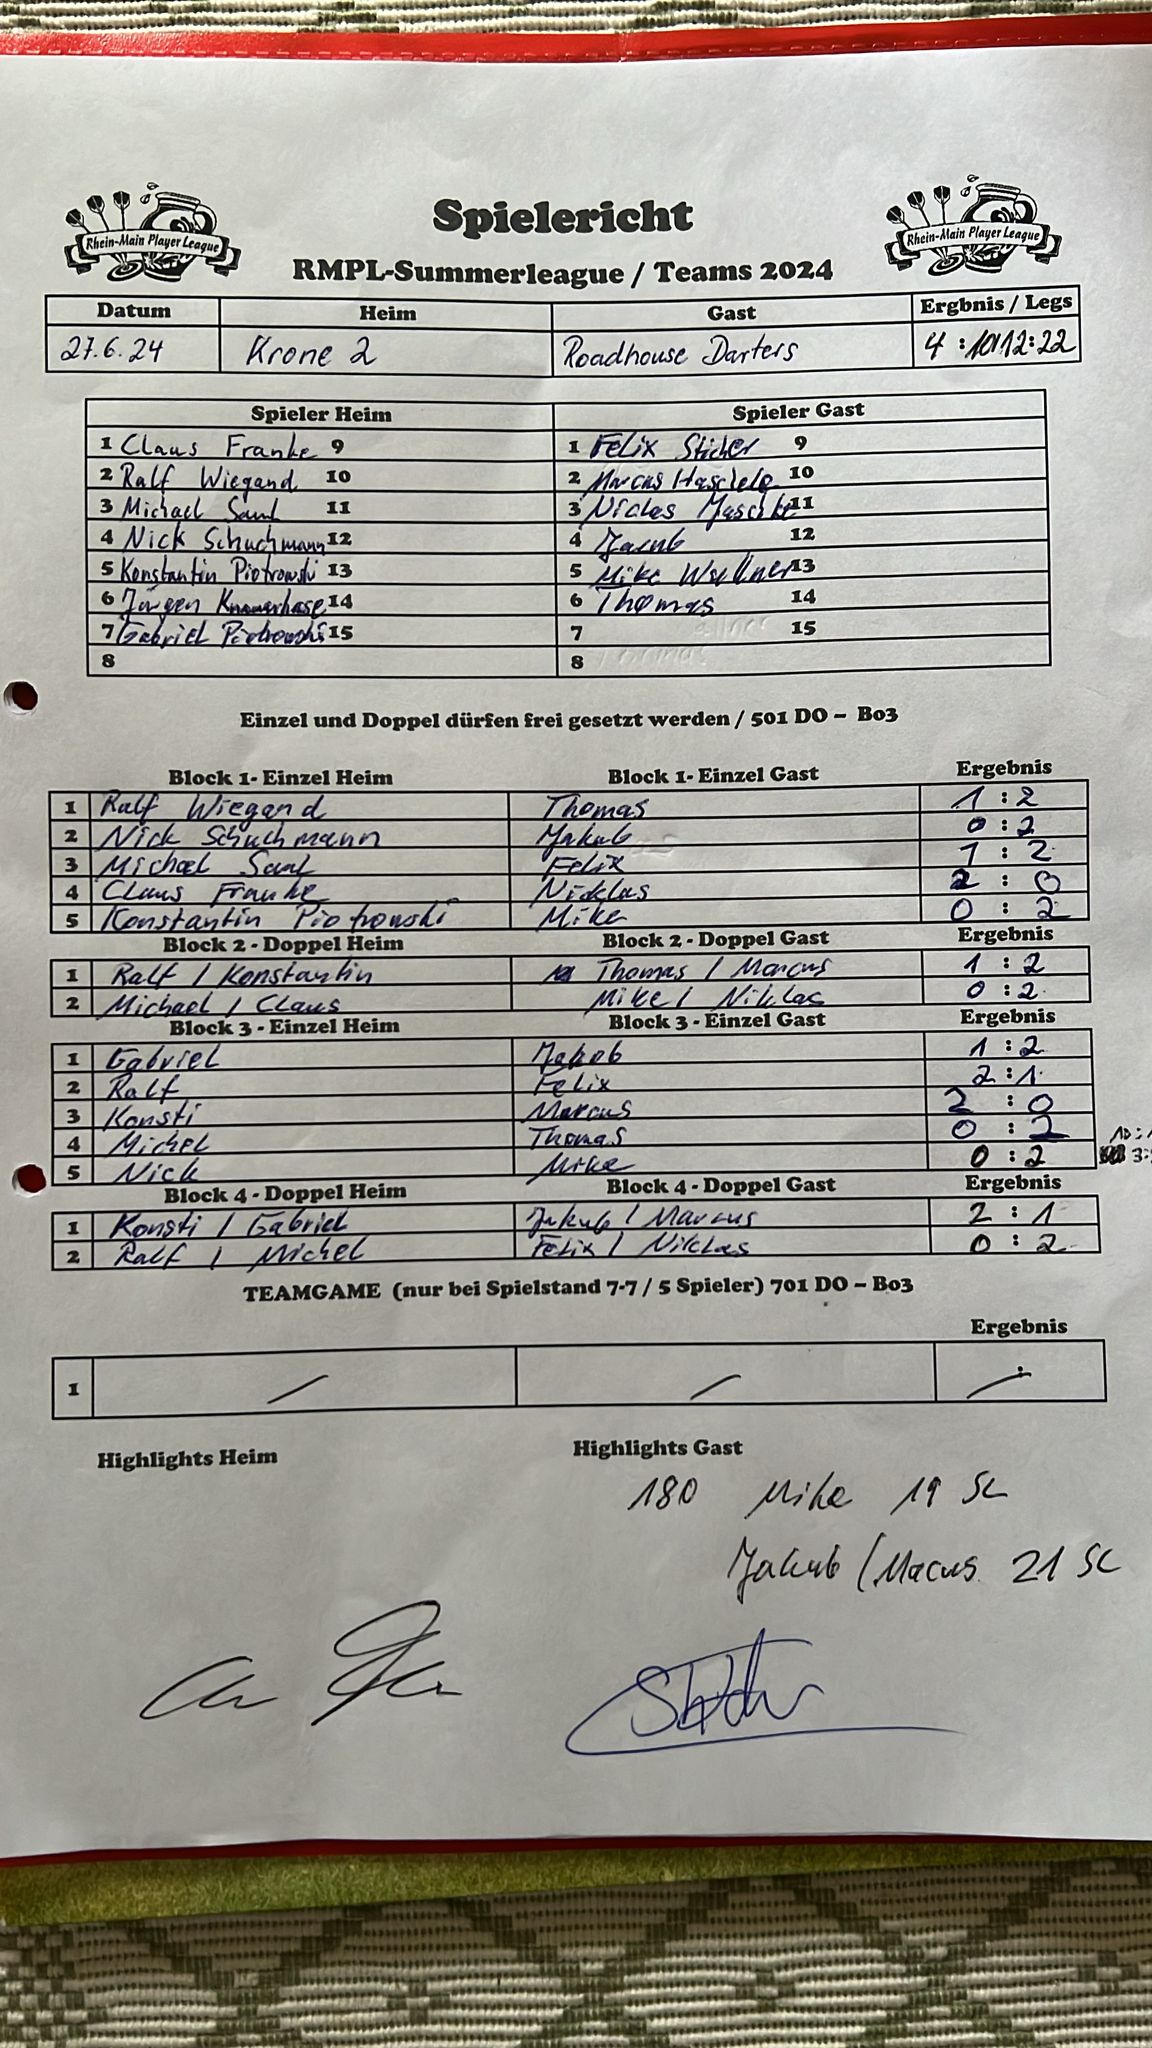 Rhein-Main Player League
Spielericht
Rhein-Main Player League
RMPL-Summerleague / Teams 2024
Datum Heim Gast Ergbnis / Legs
27.6.24 Krone 2 Roadhouse Darters 4 : 10 / 12 : 22
Spieler Heim Spieler Gast
1 Claus Franke 9 1 Felix Sticher 9
2 Ralf Wiegand 10 2 Marcus 10
3 Michael 11 3 Niclas 11
4 Nick Schuchmann 12 4 Jakub 12
5 Konstantin Piotrowski 13 5 Mike 13
6 Jürgen 14 6 Thomas 14
7 Gabriel Piotrowski 15 7 15
8 8
Einzel und Doppel dürfen frei gesetzt werden / 501 DO – Bo3
Block 1- Einzel Heim Block 1- Einzel Gast Ergebnis
1 Ralf Wiegand Thomas 1 : 2
2 Nick Schuchmann Jakub 0 : 2
3 Michael Felix 1 : 2
4 Claus Franke Nicklas 2 : 0
5 Konstantin Piotrowski Mike 0 : 2
Block 2 - Doppel Heim Block 2 - Doppel Gast Ergebnis
1 Ralf / Konstantin Thomas / Marcus 1 : 2
2 Michael / Claus Mike / Niklas 0 : 2
Block 3 - Einzel Heim Block 3 - Einzel Gast Ergebnis
1 Gabriel Jakob 1 : 2
2 Ralf Felix 2 : 1
3 Konsti Marcus 2 : 0
4 Michel Thomas 0 : 2
5 Nick Mike 0 : 2
Block 4 - Doppel Heim Block 4 - Doppel Gast Ergebnis
1 Konsti / Gabriel Jakub / Marcus 2 : 1
2 Ralf / Michel Felix / Niklas 0 : 2
TEAMGAME (nur bei Spielstand 7-7 / 5 Spieler) 701 DO – Bo3
Ergebnis
1 / / :
Highlights Heim Highlights Gast
180 Mike 19 SL
Jakub / Macus 21 SL